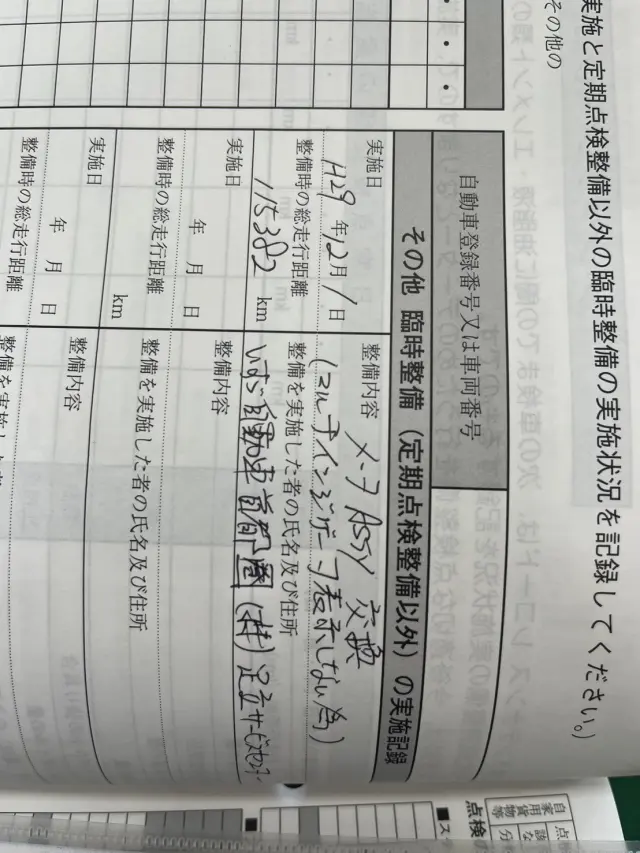 実施と定期点検整備以外の臨時整備の実施状況を記録してください。)
その他の
自動車登録番号又は車両番号
その他 臨時整備（定期点検整備以外）の実施記録
実施日
H29年12月1日
整備内容
メータASSY 交換
(マルチインジケータ表示しない為)
整備時の総走行距離
115382 km
整備を実施した者の氏名及び住所
いすゞ自動車首都圏(株)足立サービスセンター
実施日
年 月 日
整備内容
整備時の総走行距離
km
整備を実施した者の氏名及び住所
実施日
年 月 日
整備内容
整備時の総走行距離
整備を実施した者
点検の
自家用貨物等